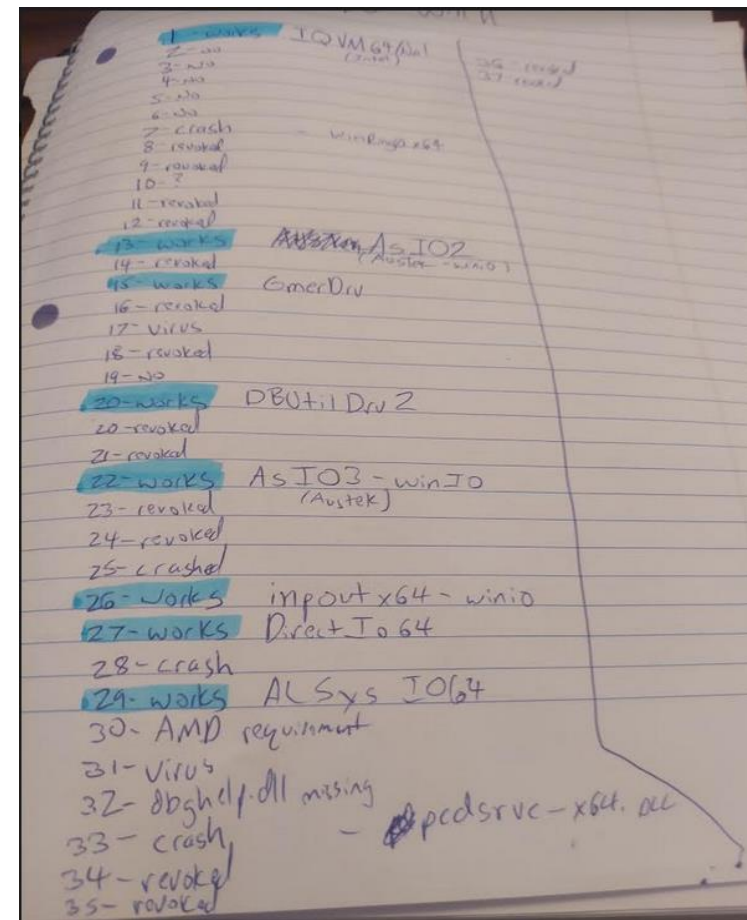 1 - works IQVM64/Nal
(Intel)
2 - No
3 - No
4 - No
5 - No
6 - No
7 - crash - WinRing0x64
8 - revoked
9 - revoked
10 - ?
11 - revoked
12 - revoked
13 - works AsIO2
(Austek - winio)
14 - revoked
15 - works GmerDrv
16 - revoked
17 - virus
18 - revoked
19 - No
20 - works DBUtilDrv2
20 - revoked
21 - revoked
22 - works AsIO3 - winIo
(Austek)
23 - revoked
24 - revoked
25 - crashed
26 - works inpoutx64 - winio
27 - works DirectIo64
28 - crash
29 - works ALSysIO64
30 - AMD requirment
31 - virus
32 - dbghelp.dll missing
33 - crash - pcdsrvc-x64.
34 - revoked
35 - revoked
36 - revoked
37 - revoked